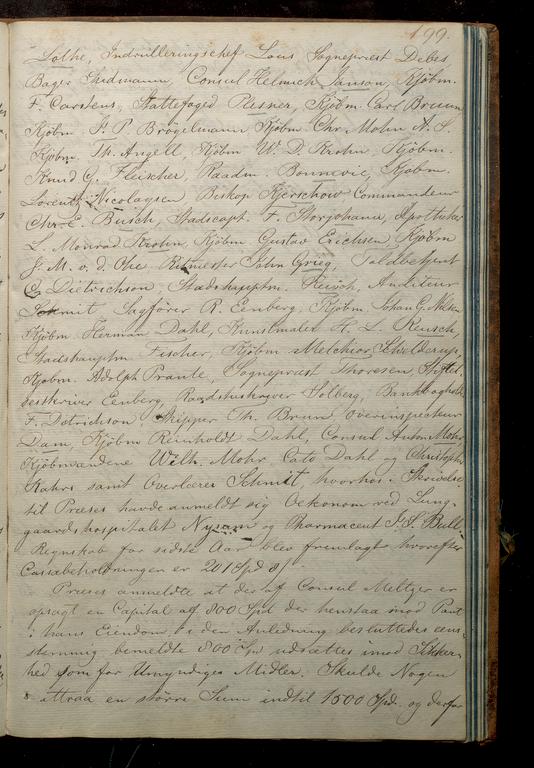 199.
Lothe, Indrulleringschef Lous Sognepræst Debes,
Bager Svidmann, Consul Helmich Janson, Kjöbm.
F. Carstens, Stattefoged Plesner, Kjöbm. Carl Bruun
Kjöbm. J. P. Brögelmann Kjöbm Chr. Mohn A. S.
Kjöbm. Th. Angell, Kjöbm W. D. Krohn, Kjöbm.
Knud G. Fleischer, Raadm. Bonnevie, Kjöbm.
Lorentz Nicolaysen Biskop Kjerschow Commandeur
Chr. E. Busch, Stadscapt. F. Storjohann, Apotheker
L. Monrad Krohn, Kjöbm Gustav Erichsen, Kjöbm
J. M. v. d. Ohe Ritmester John Grieg, Toldbetjent
C. Dietrichson, Stadshauptm. Reusch, Auditeur
Schmit, Sagförer R. Eenberg, Kjöbm. Johan G. Nilsen
Kjöbm Herman Dahl, Kunstmaler H. L. Reusch,
Stadshauptm Fischer, Kjöbm Melchior Schelderup,
Kjöbm. Adolph Prante, Sogneprest Thoresen, Stiftet
beskriver Eenberg, Raadstuskriver Solberg, Bankbogholder
F. Dietrichson Skipper Th. Bruun Overinspecteur
Dam, Kjöbm Reinholdt Dahl, Consul Anton Mohr,
Kjöbmændene Wilh. Mohr Cato Dahl og Christopher
Kahrs samt Overlærer Schmit, hvorhos i Skrivelse
til Præses havde anmeldt sig Oekonom ved Lung-
gaardshospitalet Nysom og Pharmaceut J. S. Bull
Regnskab for sidste Aar blev fremlagt hvorefter
Cassabeholdningen er 201 Spd
Præses anmeldte at der af Consul Meltzer er
opsagt en Capital af 800 Spd der henstaa mod Pant
i hans Eiendom, i den Anledning besluttedes een-
stemmig bemeldte 800 Spd udsættes imod Sikker-
hed som for Umyndiges Midler. Skulde Nogen
attraa en större Sum indtil 1500 Spd. og derfor